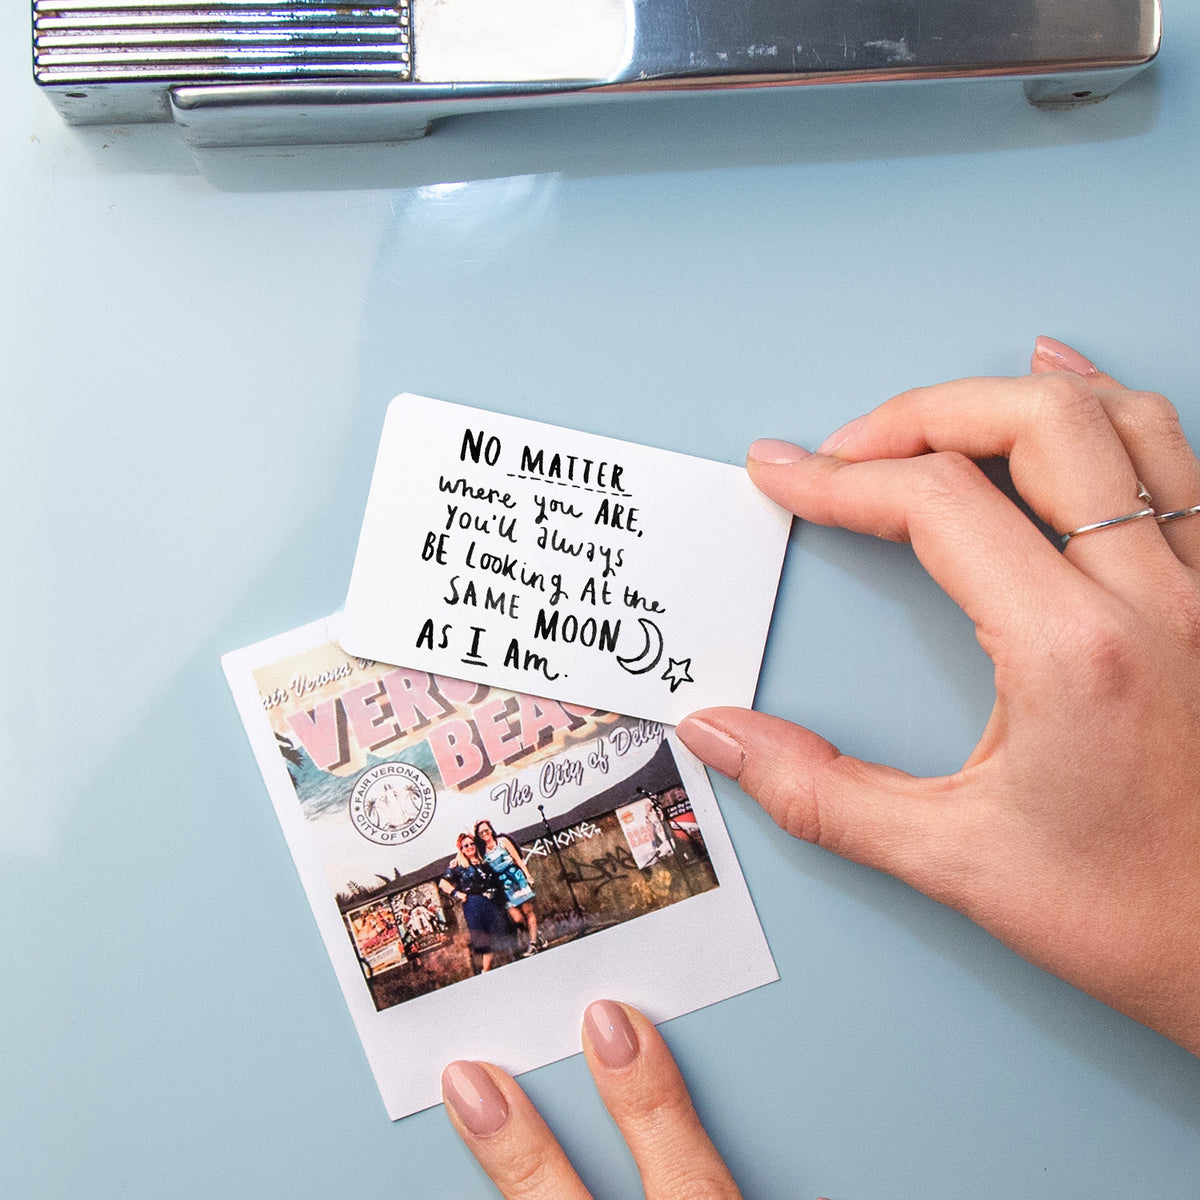 NO MATTER
where you ARE,
you'll always
BE Looking At the
SAME MOON
AS I Am.
air Verona
VERO
BEA
The City of Delig
FAIR VERONA
CITY OF DELIGHTS